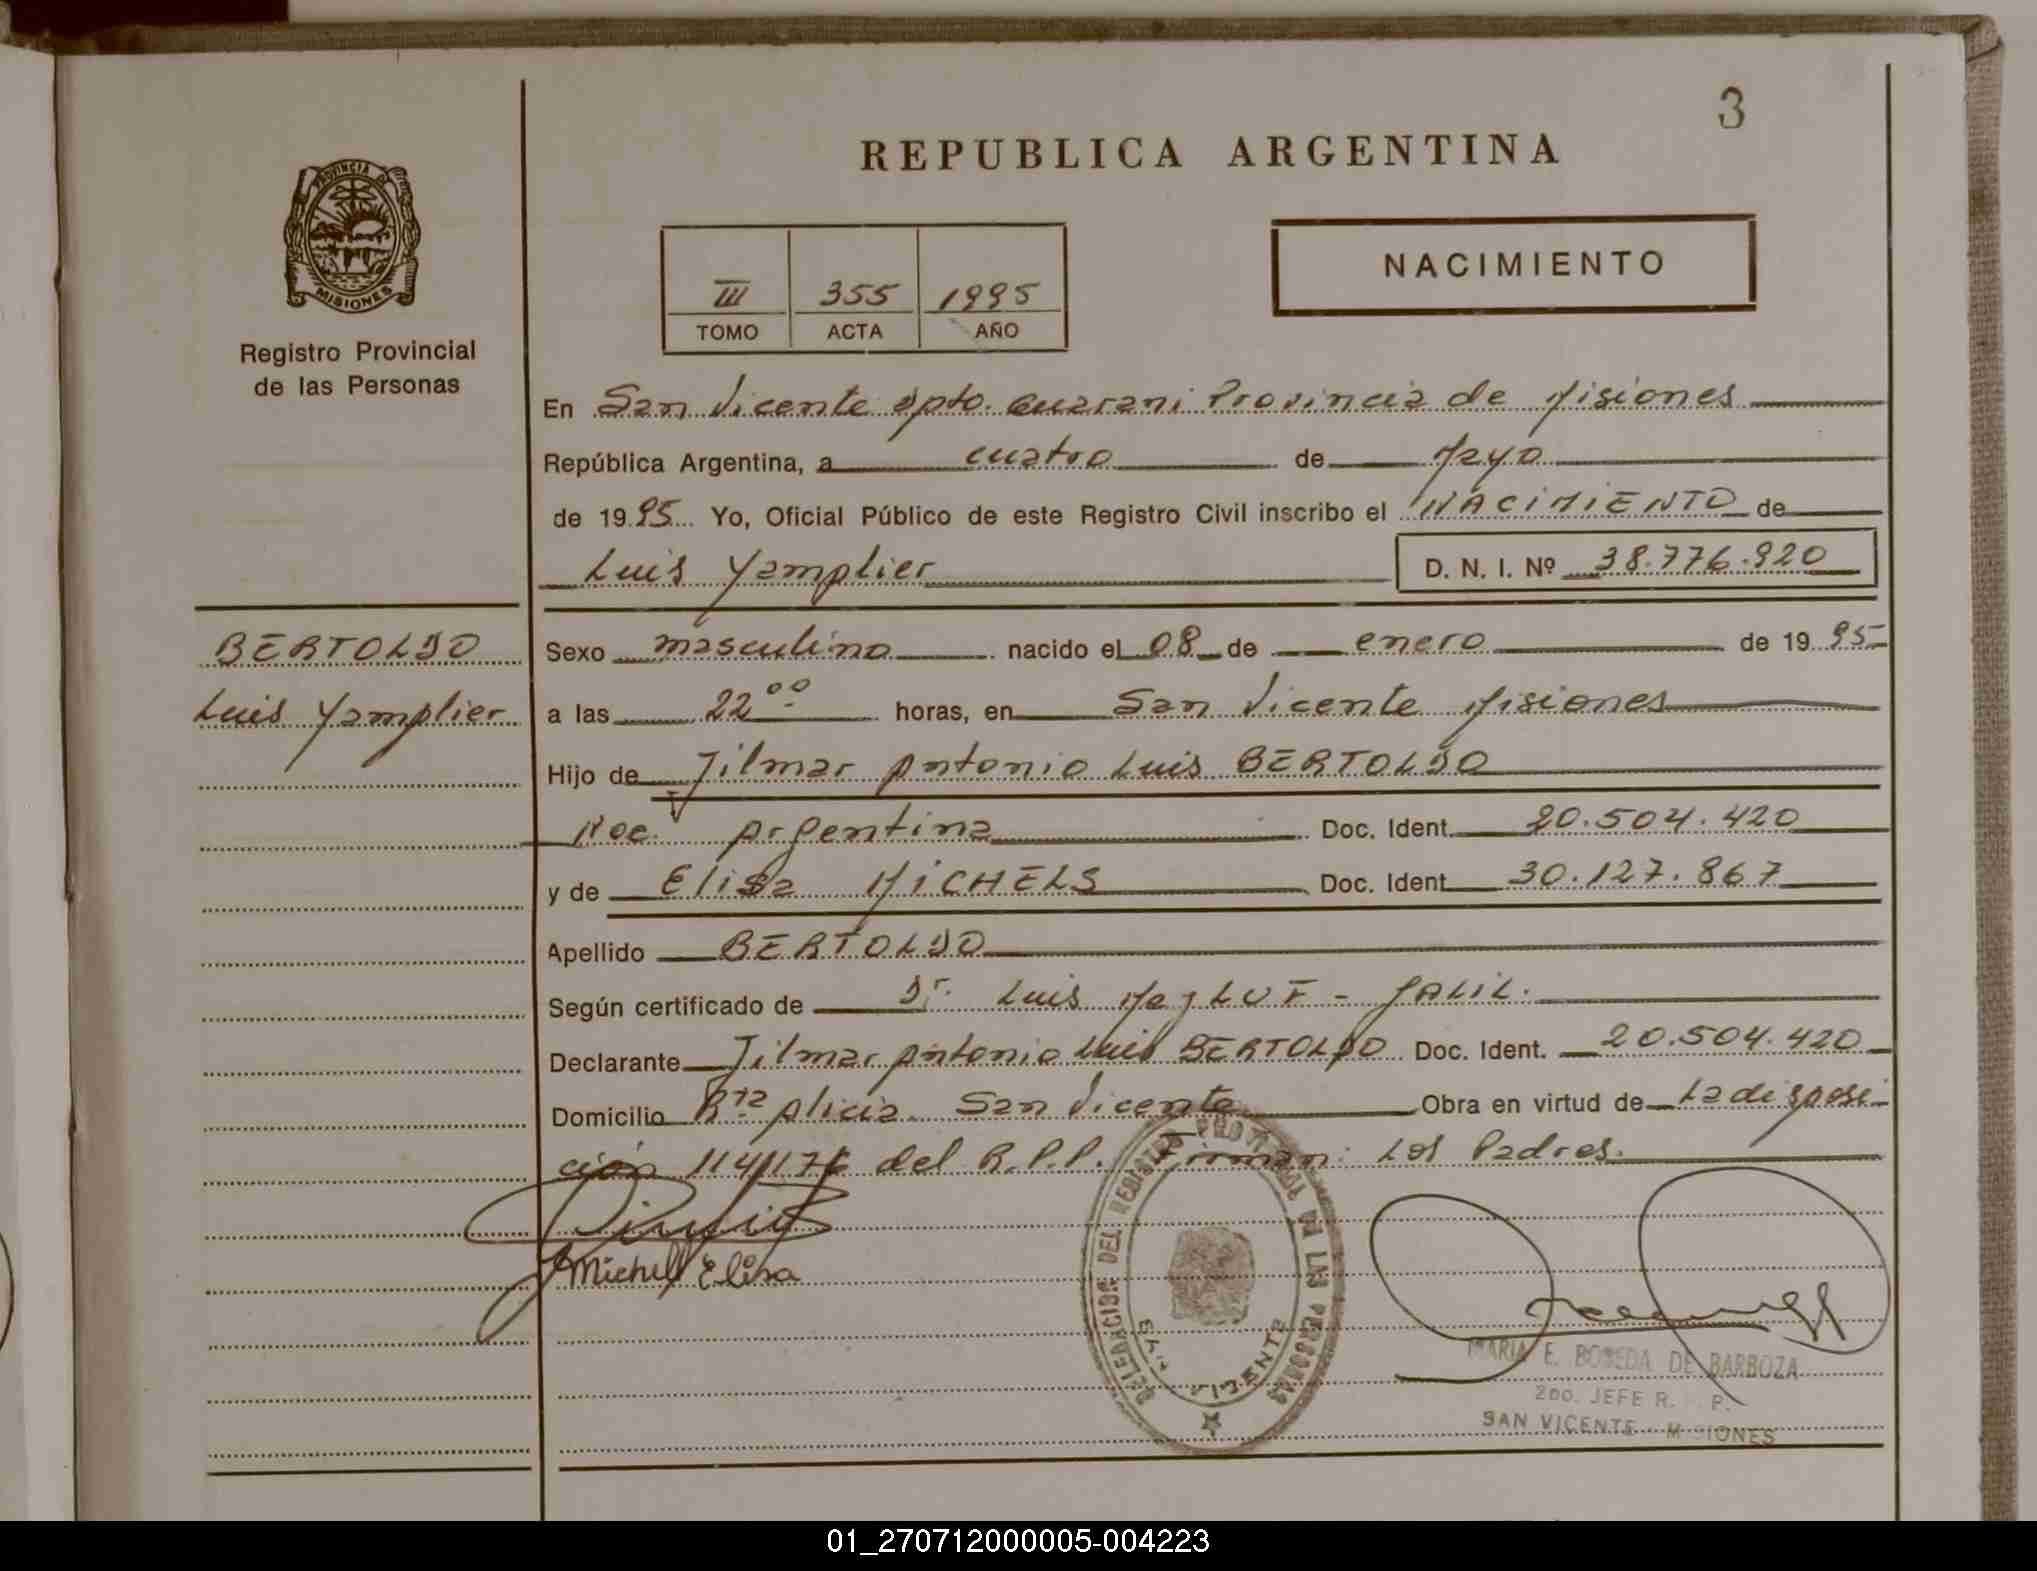 3
REPUBLICA ARGENTINA
PROVINCIA DE
MISIONES
Registro Provincial
de las Personas
III 355 1995
TOMO ACTA AÑO
NACIMIENTO
En San Vicente dpto. Guarani Provincia de Misiones
República Argentina, a cuatro de Mayo
de 1995 Yo, Oficial Público de este Registro Civil inscribo el NACIMIENTO de
Luis Yamplier D. N. I. Nº 38.776.920
BERTOLDO
Luis Yamplier
Sexo masculino nacido el 08 de enero de 1995
a las 22⁰⁰ horas, en San Vicente Misiones
Hijo de Jilmar Antonio Luis BERTOLDO
Nac. Argentina Doc. Ident. 20.504.420
y de Elisa MICHELS Doc. Ident. 30.127.867
Apellido BERTOLDO
Según certificado de Dr. Luis LUF - JALIL.
Declarante Jilmar Antonio Luis BERTOLDO Doc. Ident. 20.504.420
Domicilio Rta Alicia San Vicente Obra en virtud de La disposi
ción 114/176 del R.P.P. Firman: Los Padres.
Michel Elisa
DELEGACION DEL REGISTRO PROVINCIAL DE LAS PERSONAS
SAN VICENTE
MARIA E. BOBEDA DE BARBOZA
2do. JEFE R. P.
SAN VICENTE - MISIONES
01_270712000005-004223